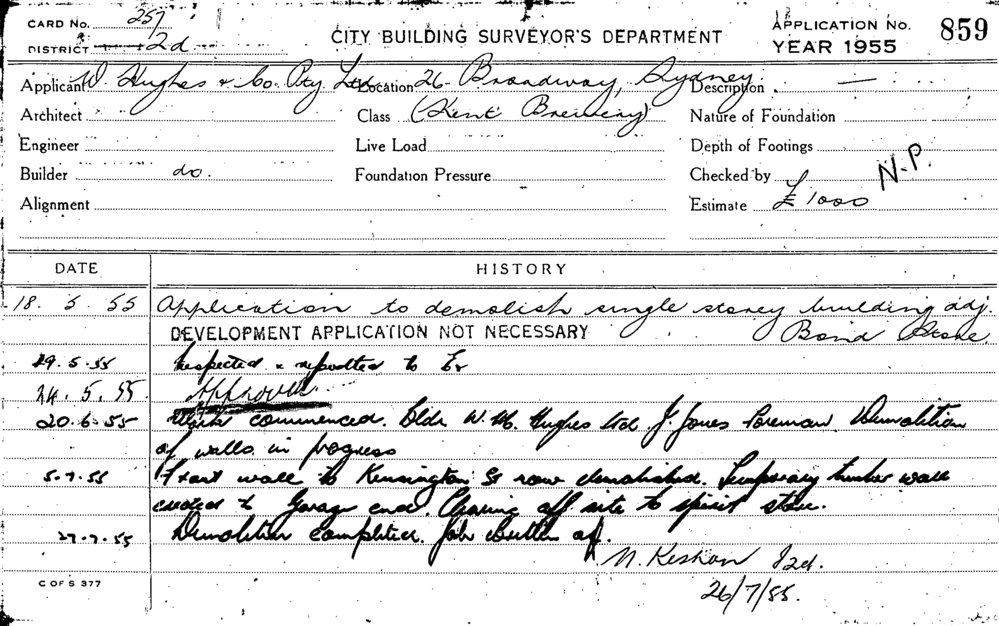 CARD No. 257
DISTRICT 2d
CITY BUILDING SURVEYOR'S DEPARTMENT
APPLICATION No. 859
YEAR 1955
Applicant W. Hughes & Co. Pty. Ltd. Location 26 Broadway, Sydney Description —
Architect Class (Kent Brewery) Nature of Foundation
Engineer Live Load Depth of Footings
Builder do. Foundation Pressure Checked by N.P.
Alignment Estimate £1000
DATE HISTORY
18. 5. 55 Application to demolish single storey building adj.
DEVELOPMENT APPLICATION NOT NECESSARY Bond Store
19.5.55 Inspected & reported to
24.5.55. Approved
20.6.55 Work commenced. Bldr W. M. Hughes Ltd J. Jones Foreman Demolition
of walls in progress
5.7.55 Front wall to Kensington St now demolished. Temporary timber wall
erected to Garage end. Clearing off site to spirit store.
27.7.55 Demolition completed. Job written off.
26/7/55.
C OF S 377